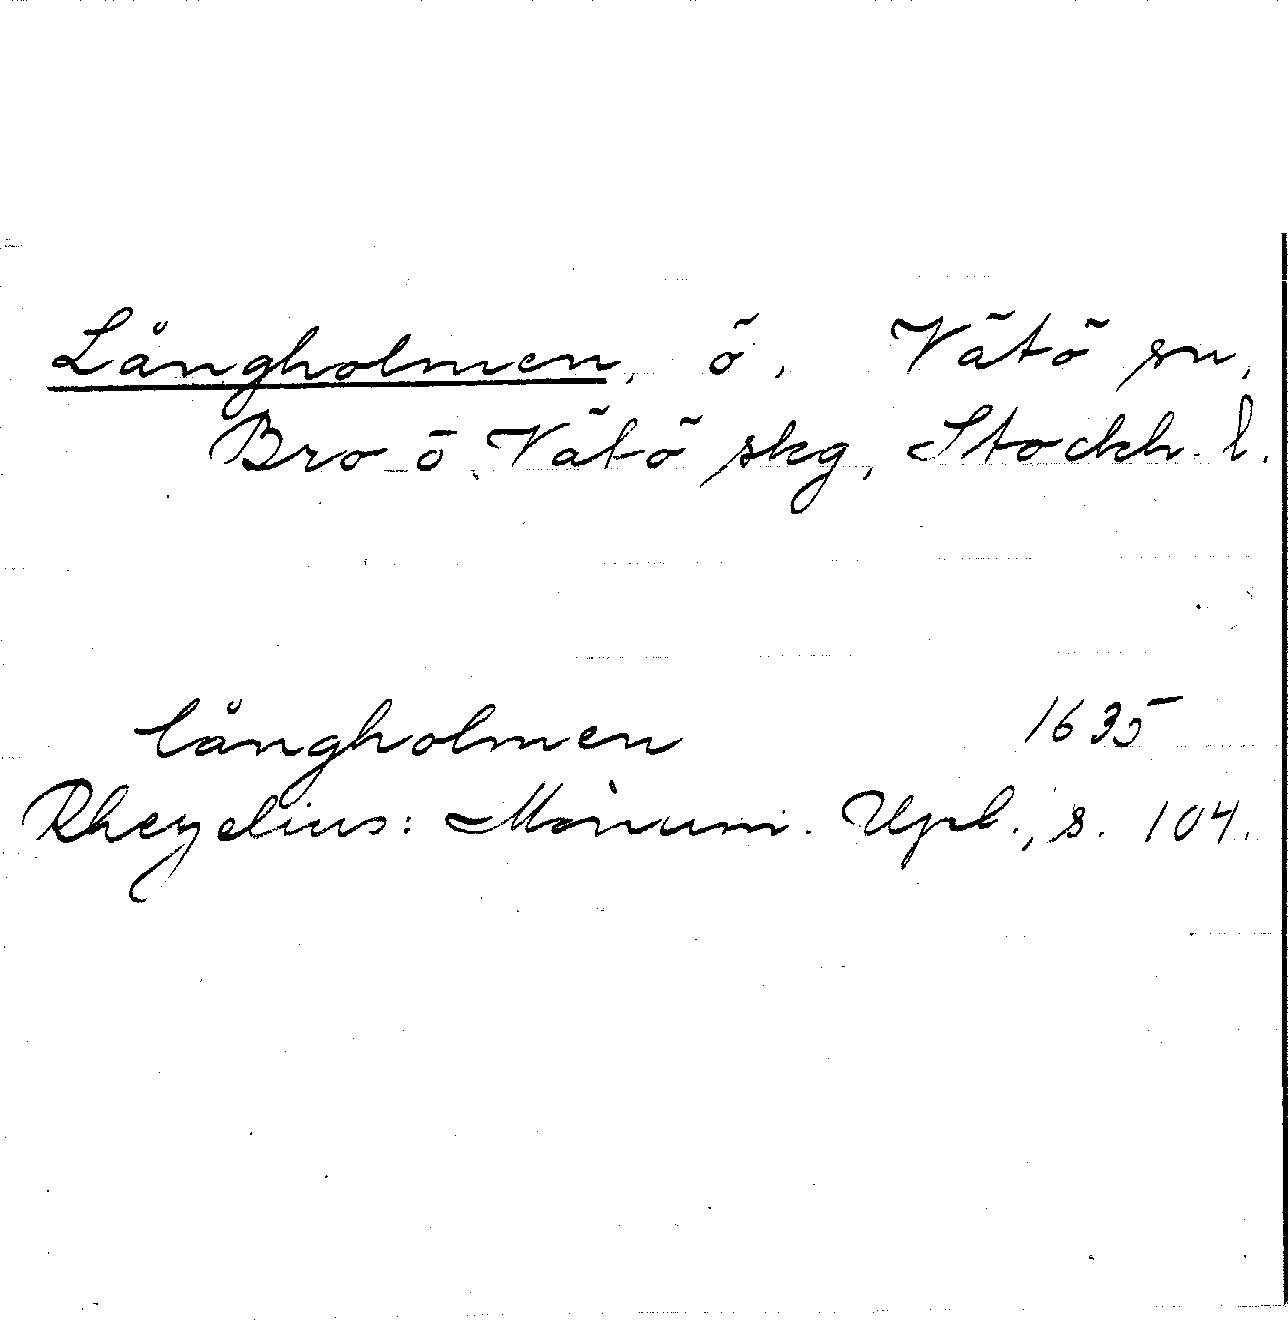 Långholmen, ö, Vätö sn,
Bro o. Vätö skg, Stockh. l.
långholmen 1635
Rhezelius: Monum. Upl., s. 104.